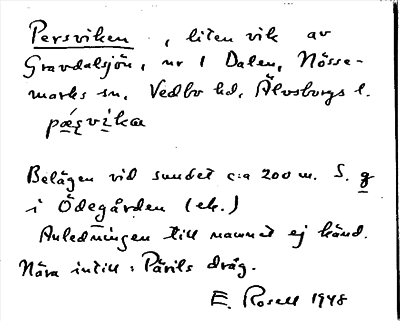 Persviken, liten vik av
Gravdalsjön, nr 1 Dalen, Nösse-
marks sn, Vedbo hd, Älvsborgs l.
pæ̱ʂvi̱ka
Belägen vid sundet c:a 200 m. S. g
i Ödegården (ek.)
Anledningen till namnet ej känd.
Nära intill: Pärils dråg.
E. Rosell 1948